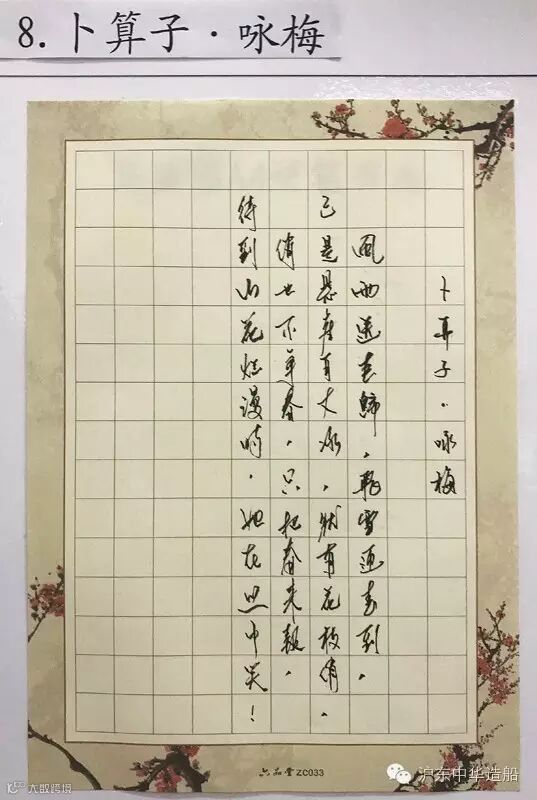 8.卜算子·咏梅
卜算子·咏梅
风雨送春歸，飛雪迎春到。
已是悬崖百丈冰，犹有花枝俏。
俏也不争春，只把春来報。
待到山花烂漫时，她在丛中笑！
六品堂 ZC033
沪东中华造船
大数跨境